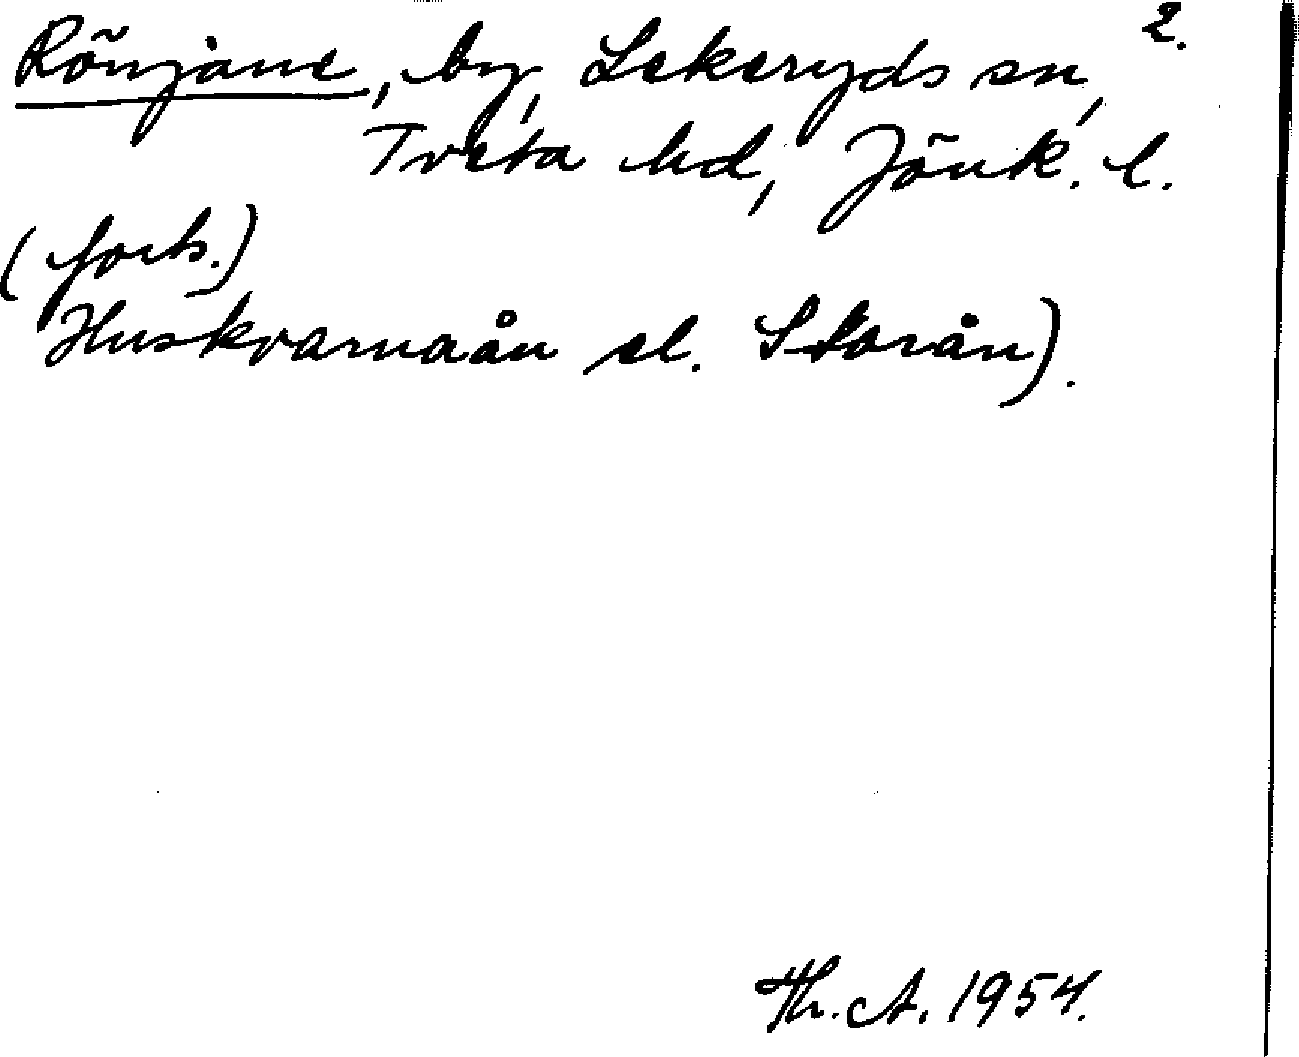 2.
Rönjane, by, Lekeryds sn,
Tveta hd, Jönk. l.
(forts.)
Huskvarnaån el. Storån).
Th. A. 1954.